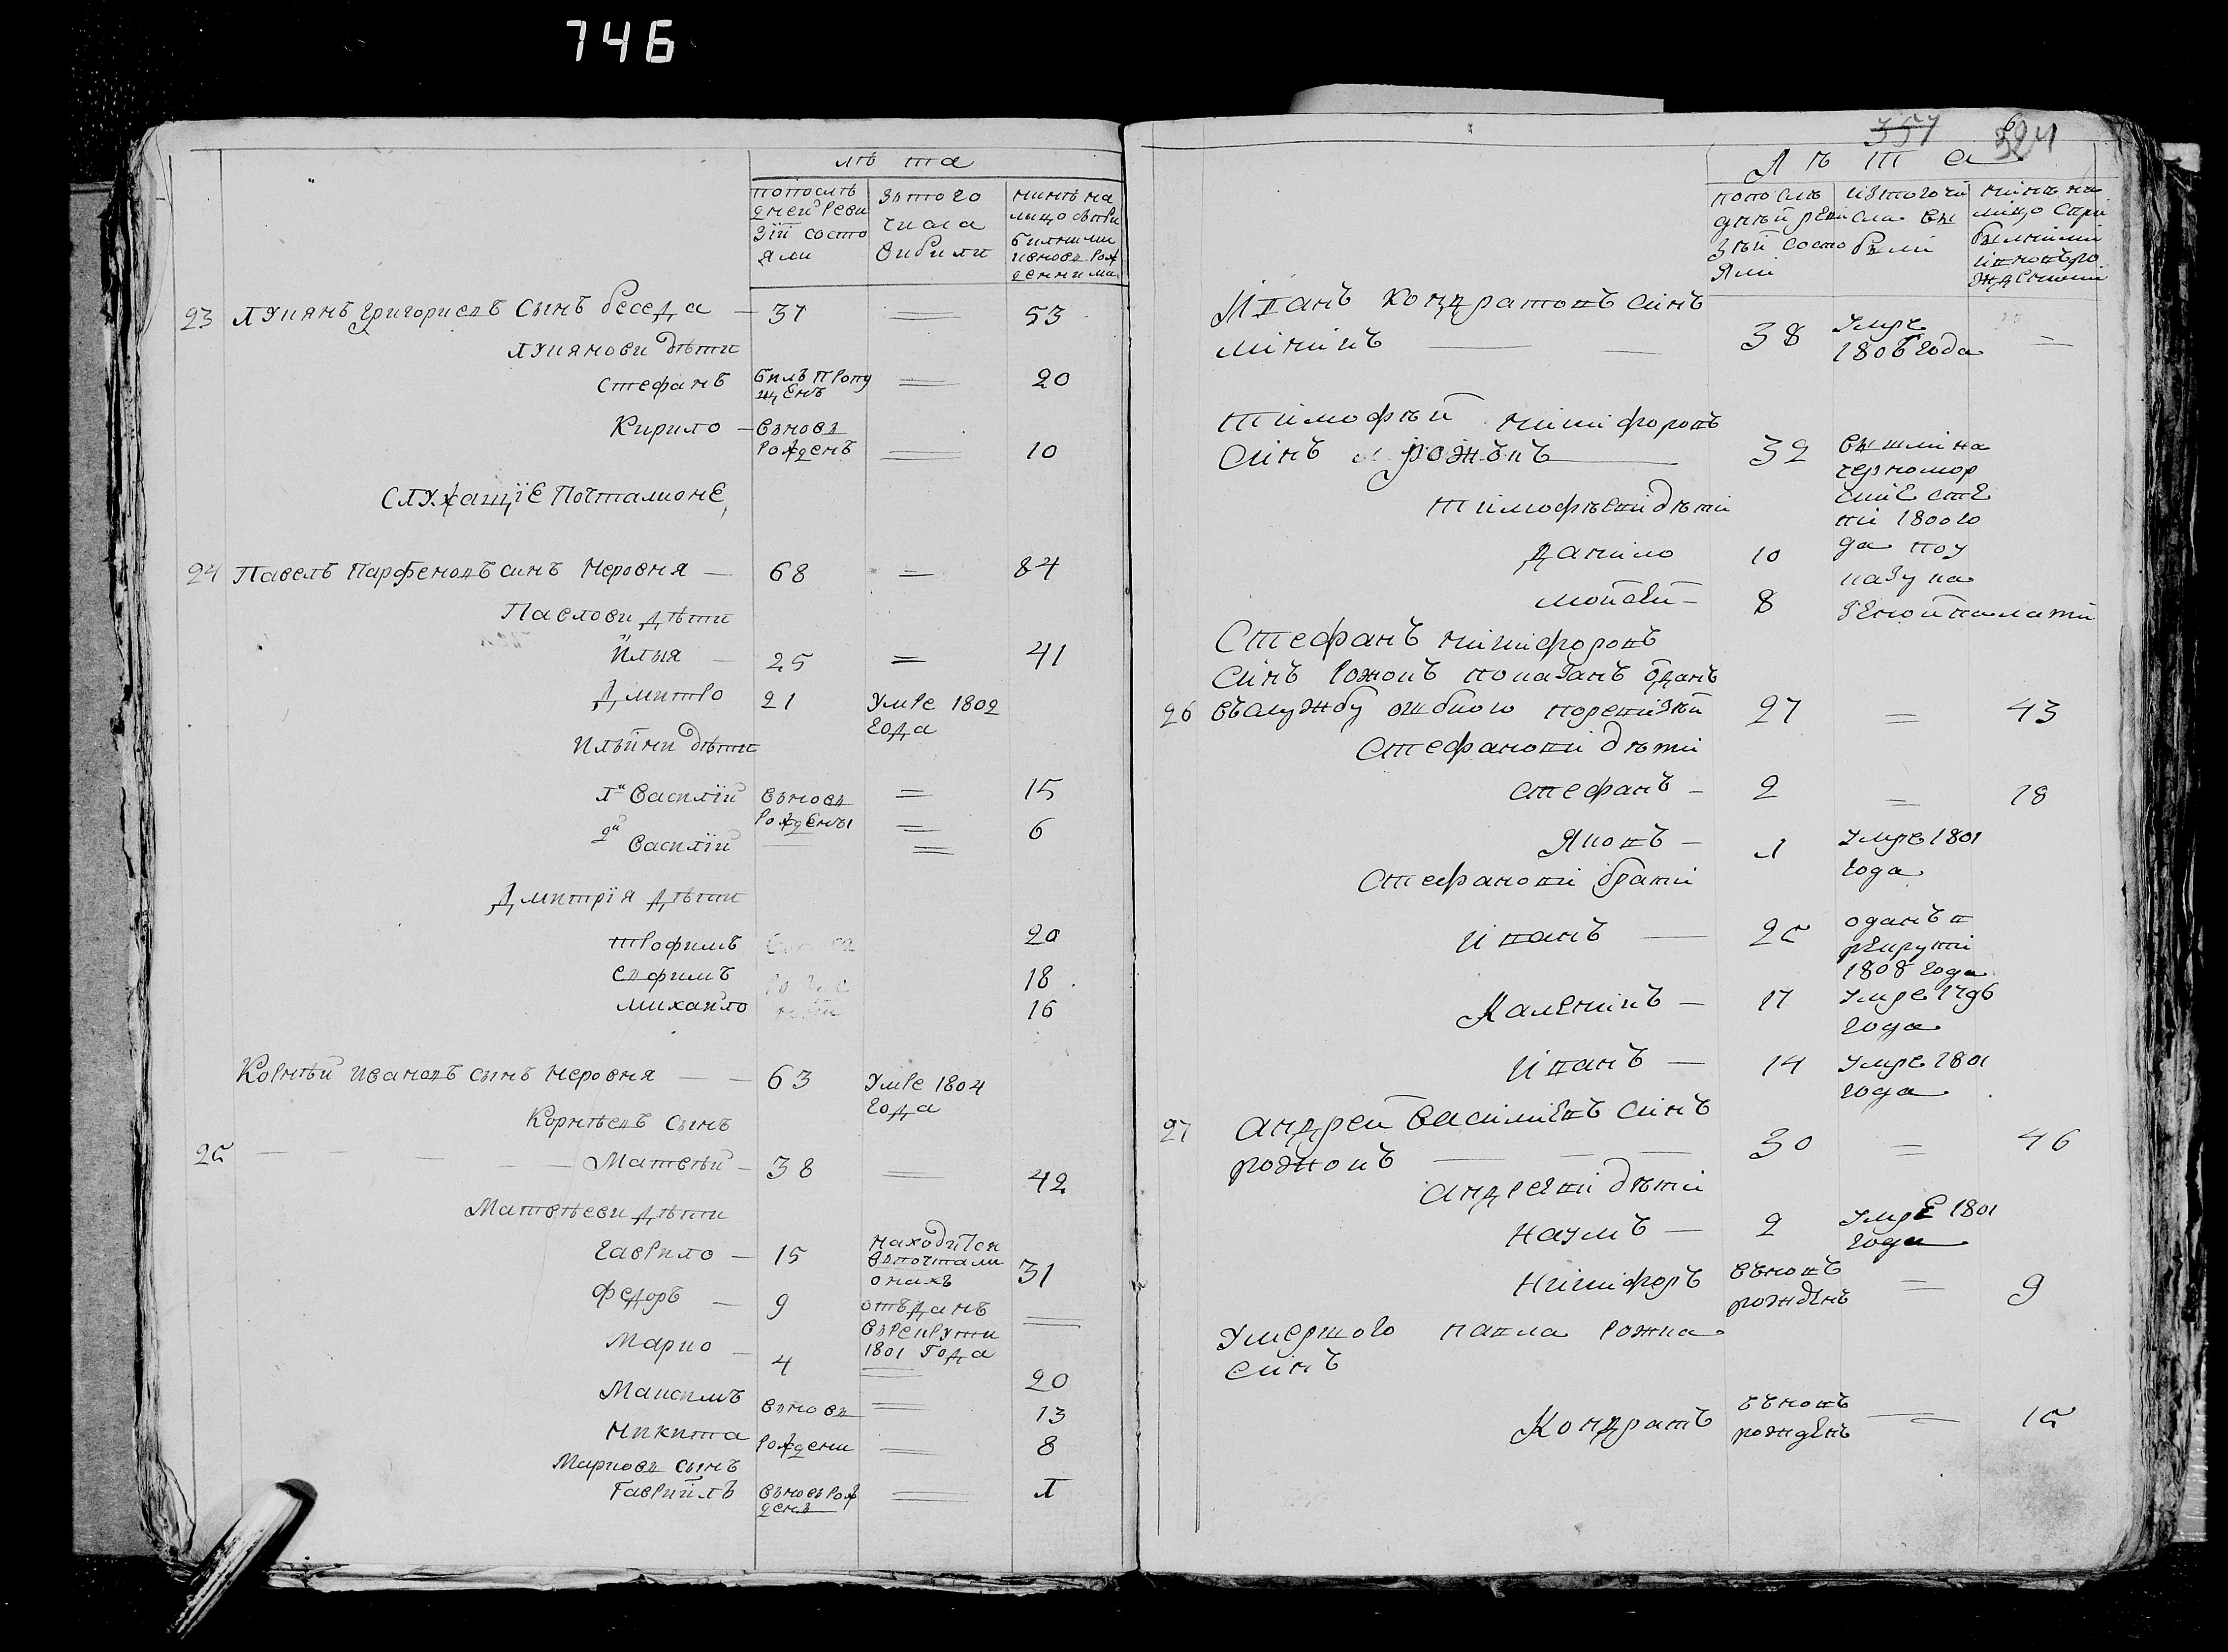 746
лѣ та
попослѣ
дней реви
зіи состо
яли
зътого
числа
вибили
нинѣ на
лицо съпри
билими
ивновь рож
денними
23 Лукянъ Григориевъ сынъ беседа — 37 = 53
Лукянови дѣти
Стефанъ билъ пропу
щенъ = 20
Кирило — вновь
рожденъ = 10
служащіе Почталионе,
24 Павелъ Парфеновъ синъ Неровня — 68 = 84
Павлови дѣти
Илья — 25 = 41
Дмитро 21 Умре 1802
года
Ильини дѣти
1й Василій вновь = 15
рождены
2й Василій = 6
Дмитрія дѣти
Трофимъ 20
Евфимъ 18
Михайло 16
Корнѣй Ивановъ сынъ Неровня — — 63 Умре 1804
года
Корнѣевъ сынъ
25 — — — — — Матвѣй — 38 = 42
Матвѣеви дѣти
Гаврило — 15 находится
въпочтали
онахъ 31
Федоръ — 9 отъданъ
врекрути
1801 Года =
Марко — 4 = 20
Максимъ вновь = 13
Никита рождени = 8
Марковъ сынъ
Гавриилъ вновь рож
денъ = 1
357 324
6
Л ѣ т а
попослѣ
дней реви
зіи состо
яли
изтого чи
сла вы
были
нинѣ на
лицо спри
былыми
ивновъро
жденими
Иванъ Кондратовъ синъ
линикъ — — 38 Умре
1806 года =
Тимофѣй никифоровъ
синъ рожокъ — 32 вышли на
черномор
скиѣ сте
пи 1800 го
да по у
казу ка
зеной палати
Тимофѣеви дѣти
Данило 10
Мойсей — 8
Стефанъ никифоровъ
синъ рожокъ показанъ одинъ
26 въслужбу оживого поревизіи 27 = 43
Стефанови дѣти
стефанъ — 2 = 18
Яковъ — 1 Умре 1801
года
Стефанови брати
Иванъ — 25 отданъ в
рекрути
1808 года
Каленикъ — 17 Умре 1796
года
Иванъ — 14 Умре 1801
года
27 Андрей Васильевъ синъ
рожокъ — — — 30 = 46
Андреѣви дѣти
Наумъ — 2 Умре 1801
года
Никифоръ вновъ
рожденъ = 9
Умершого павла рожка
синъ
Кондратъ вновъ
рожденъ = 15